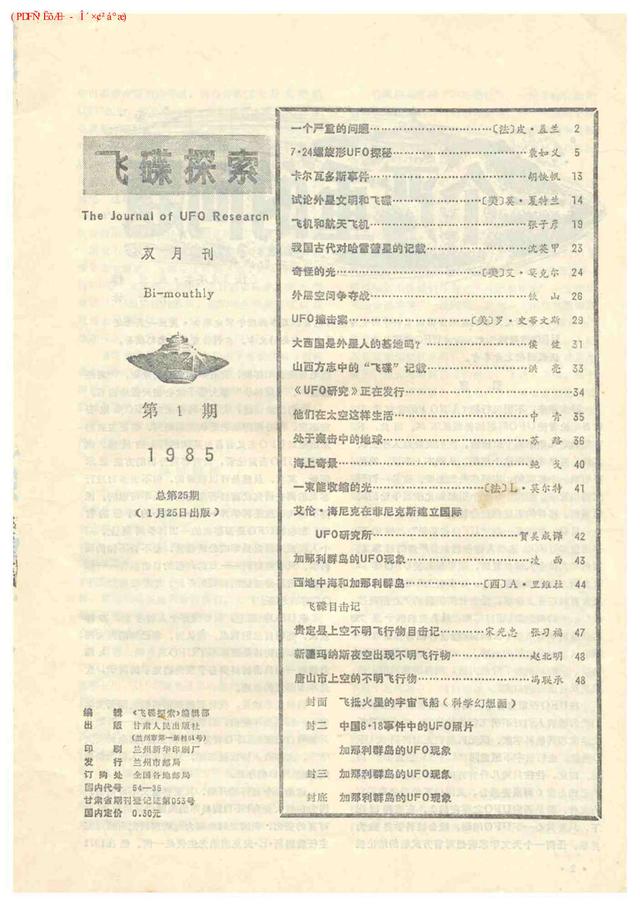 飞碟探索
The Journal of UFO Research
双月刊
Bi-mouthly
第1期
1985
总第25期
(1月25日出版)
编辑 《飞碟探索》编辑部
出版 甘肃人民出版社
(兰州市第一新村51号)
印刷 兰州新华印刷厂
发行 兰州市邮局
订购处 全国各地邮局
国内代号 54—35
甘肃省期刊登记证第053号
国内定价 0.30元
一个严重的问题……〔法〕皮·盖兰 2
7·24螺旋形UFO探秘……袁如义 5
卡尔瓦多斯事件……胡铁帆 13
试论外星文明和飞碟……〔美〕莫·夏特兰 14
飞机和航天飞机……张子彦 19
我国古代对哈雷彗星的记载……沈英甲 23
奇怪的光……〔美〕艾·莫克尔 24
外层空间争夺战……山 26
UFO撞击案……〔美〕罗·史蒂文斯 29
大西国是外星人的基地吗?……侯健 31
山西方志中的“飞碟”记载……洪亮 33
《UFO研究》正在发行……34
他们在太空这样生活……中青 35
处于轰击中的地球……苏路 36
海上奇景……鲍戈 40
一束能收缩的光……〔法〕L·莫尔特 41
艾伦·海尼克在菲尼克斯建立国际
UFO研究所……贺美成译 42
加那利群岛的UFO现象……凌西 43
西地中海和加那利群岛……〔西〕A·里维拉 44
飞碟目击记
贵定县上空不明飞行物目击记……宋光忠 张习福 47
新疆玛纳斯夜空出现不明飞行物……赵北明 48
唐山市上空的不明飞行物……冯联承 48
封面 飞抵火星的宇宙飞船(科学幻想画)
封二 中国6·18事件中的UFO照片
加那利群岛的UFO现象
封三 加那利群岛的UFO现象
封底 加那利群岛的UFO现象
·2·